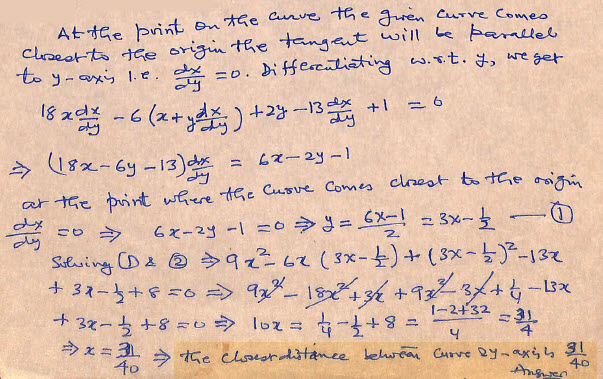 At the point on the curve the given curve comes
closest to the origin the tangent will be parallel
to y-axis i.e. dx/dy = 0. Differentiating w.r.t. y, we get
18x dx/dy - 6(x + y dx/dy) + 2y - 13 dx/dy + 1 = 0
⇒ (18x - 6y - 13) dx/dy = 6x - 2y - 1
at the point where the curve comes closest to the origin
dx/dy = 0 ⇒ 6x - 2y - 1 = 0 ⇒ y = (6x-1)/2 = 3x - 1/2 — ①
Solving ① & ② ⇒ 9x² - 6x(3x - 1/2) + (3x - 1/2)² - 13x
+ 3x - 1/2 + 8 = 0 ⇒ 9x² - 18x² + 3x + 9x² - 3x + 1/4 - 13x
+ 3x - 1/2 + 8 = 0 ⇒ 10x = 1/4 - 1/2 + 8 = (1-2+32)/4 = 31/4
⇒ x = 31/40 ⇒ the closest distance between curve & y-axis is 31/40
Answer